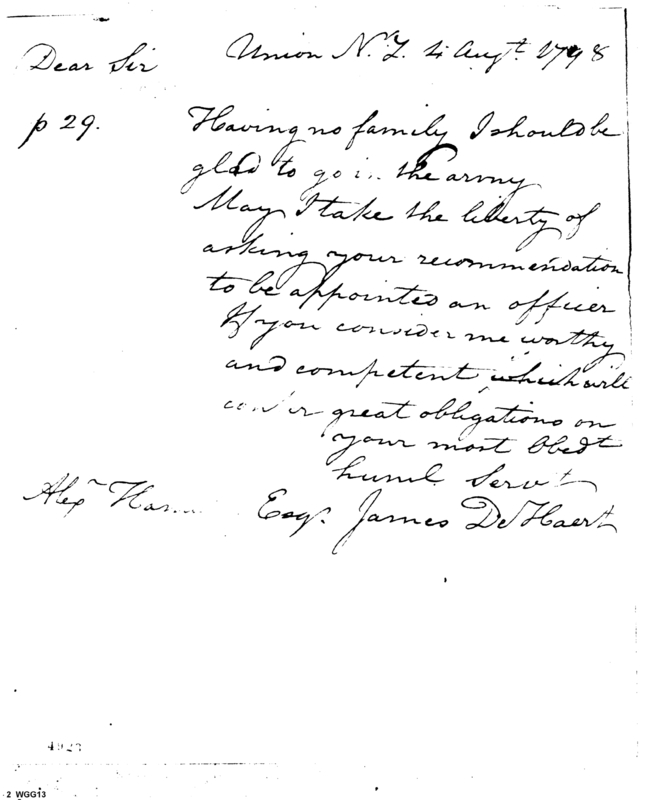 Dear Sir Union N.Y. 4 Augt. 1798
p 29. Having no family I should be
glad to go in the army
May I take the liberty of
asking your recommendation
to be appointed an officer
If you consider me worthy
and competent, which will
great obligations on
your most Obedt
huml. Servt
Alexr Esqr. James De Haert
4923
2 WGG13